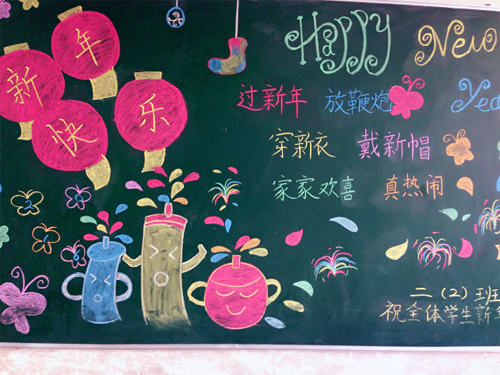 新年快乐
Happy New
Yea
过新年 放鞭炮
穿新衣 戴新帽
家家欢喜 真热闹
二（2）班
祝全体学生新年